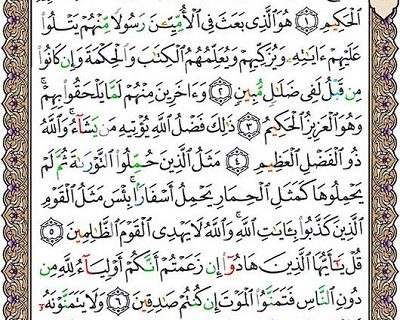 ٱلْحَكِيمِ ١ هُوَ ٱلَّذِى بَعَثَ فِى ٱلْأُمِّيِّـۧنَ رَسُولًا مِّنْهُمْ يَتْلُوا۟
عَلَيْهِمْ ءَايَـٰتِهِۦ وَيُزَكِّيهِمْ وَيُعَلِّمُهُمُ ٱلْكِتَـٰبَ وَٱلْحِكْمَةَ وَإِن كَانُوا۟
مِن قَبْلُ لَفِى ضَلَـٰلٍ مُّبِينٍ ٢ وَءَاخَرِينَ مِنْهُمْ لَمَّا يَلْحَقُوا۟ بِهِمْ ۚ
وَهُوَ ٱلْعَزِيزُ ٱلْحَكِيمُ ٣ ذَٰلِكَ فَضْلُ ٱللَّهِ يُؤْتِيهِ مَن يَشَآءُ ۚ وَٱللَّهُ
ذُو ٱلْفَضْلِ ٱلْعَظِيمِ ٤ مَثَلُ ٱلَّذِينَ حُمِّلُوا۟ ٱلتَّوْرَىٰةَ ثُمَّ لَمْ
يَحْمِلُوهَا كَمَثَلِ ٱلْحِمَارِ يَحْمِلُ أَسْفَارًۢا ۚ بِئْسَ مَثَلُ ٱلْقَوْمِ
ٱلَّذِينَ كَذَّبُوا۟ بِـَٔايَـٰتِ ٱللَّهِ ۚ وَٱللَّهُ لَا يَهْدِى ٱلْقَوْمَ ٱلظَّـٰلِمِينَ ٥
قُلْ يَـٰٓأَيُّهَا ٱلَّذِينَ هَادُوٓا۟ إِن زَعَمْتُمْ أَنَّكُمْ أَوْلِيَآءُ لِلَّهِ مِن
دُونِ ٱلنَّاسِ فَتَمَنَّوُا۟ ٱلْمَوْتَ إِن كُنتُمْ صَـٰدِقِينَ ٦ وَلَا يَتَمَنَّوْنَهُۥٓ